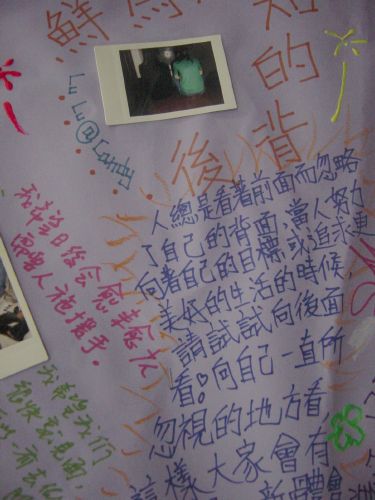 鮮為 知
的
後背
Lu Lu@Candy
人總是看著前面而忽略
了自己的背面，當人努力
向著自己的目標或追求更
美好的生活的時候，
請試試向後面
看。向自己一直所
忽視的地方看
這樣大家會有
新 體會
希望日後會愈來愈少
需要人施援手。
我希望我們